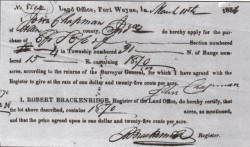 Land Office, Fort Wayne, Ia. March 11th 18
John Chapman of
county, do hereby apply for the pur-
chase of of Section numbered
in Township numbered N. of Range
numbered 15 E. containing 18 70/100
acres, according to the returns of the Surveyor General, for which I have agreed with
the Register to give at the rate of one dollar and twenty-five cents per acre.
John Chapman
I, ROBERT BRACKENRIDGE, Register of the Land Office, do hereby certify, that
the lot above described, contains 18 70/100 acres, as mentioned
above, and that the price agreed upon is one dollar and twenty-five cents per acre.
Register.